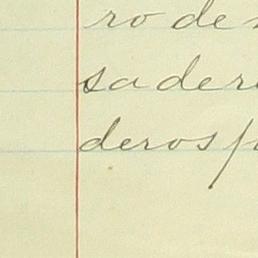 ro de
sa der
deros p